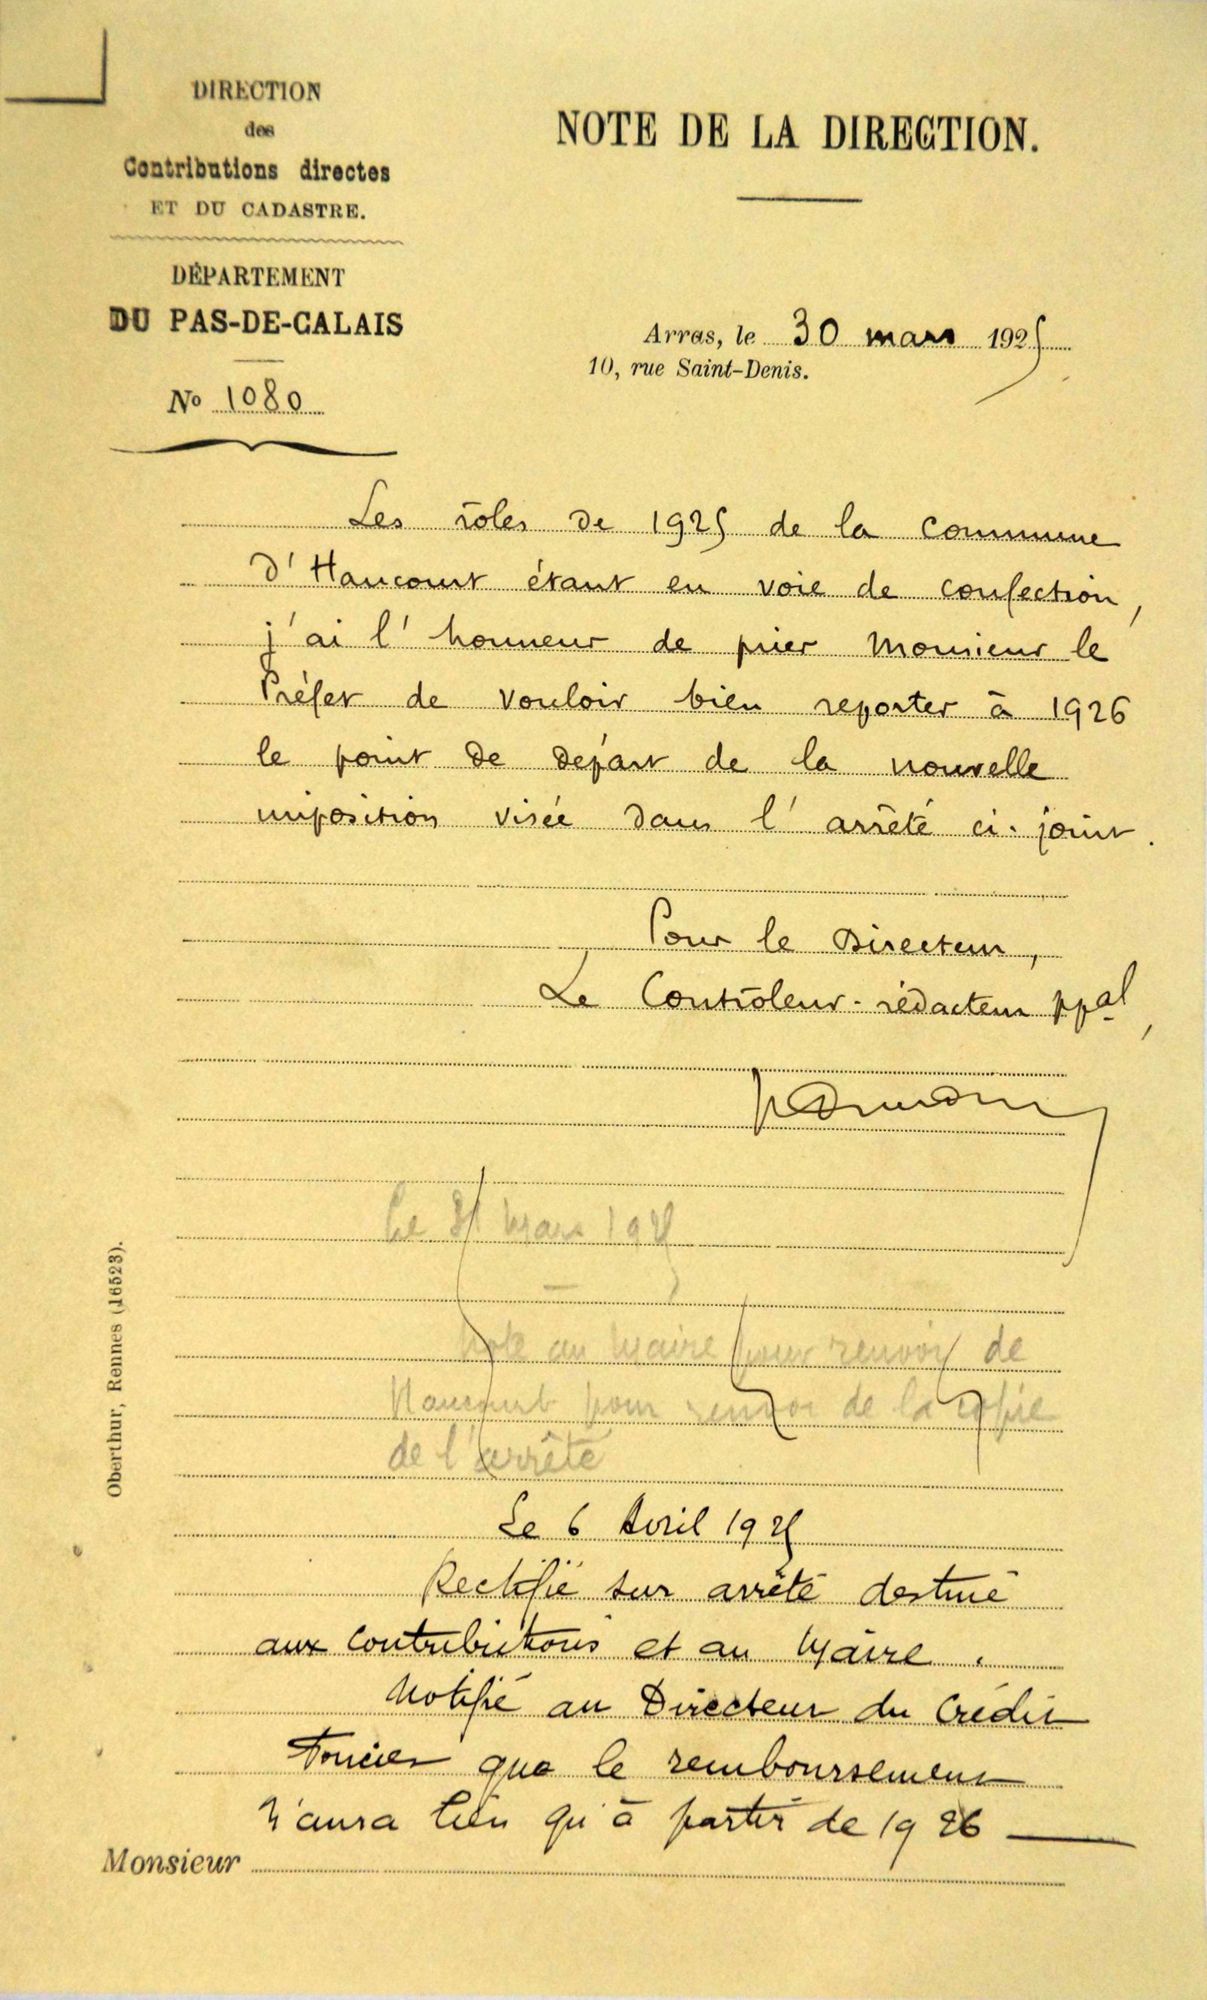 DIRECTION
des
Contributions directes
ET DU CADASTRE.
DÉPARTEMENT
DU PAS-DE-CALAIS
No 1080
NOTE DE LA DIRECTION.
Arras, le 30 mars 1925
10, rue Saint-Denis.
Les rôles de 1925 de la commune
d'Haucourt étant en voie de confection,
j'ai l'honneur de prier Monsieur le
Préfet de vouloir bien reporter à 1926
le point de départ de la nouvelle
imposition visée dans l'arrêté ci-joint.
Pour le Directeur,
Le Contrôleur-rédacteur ppal,
Le 31 Mars 1925
Note au Maire pour renvoi de
Haucourt pour renvoi de la copie
de l'arrêté
Le 6 Avril 1925
Rectifié sur arrêté destiné
aux contributions et au Maire.
Notifié au Directeur du Crédit
Foncier que le remboursement
n'aura lieu qu'à partir de 1926
Monsieur
Oberthur, Rennes (16523).